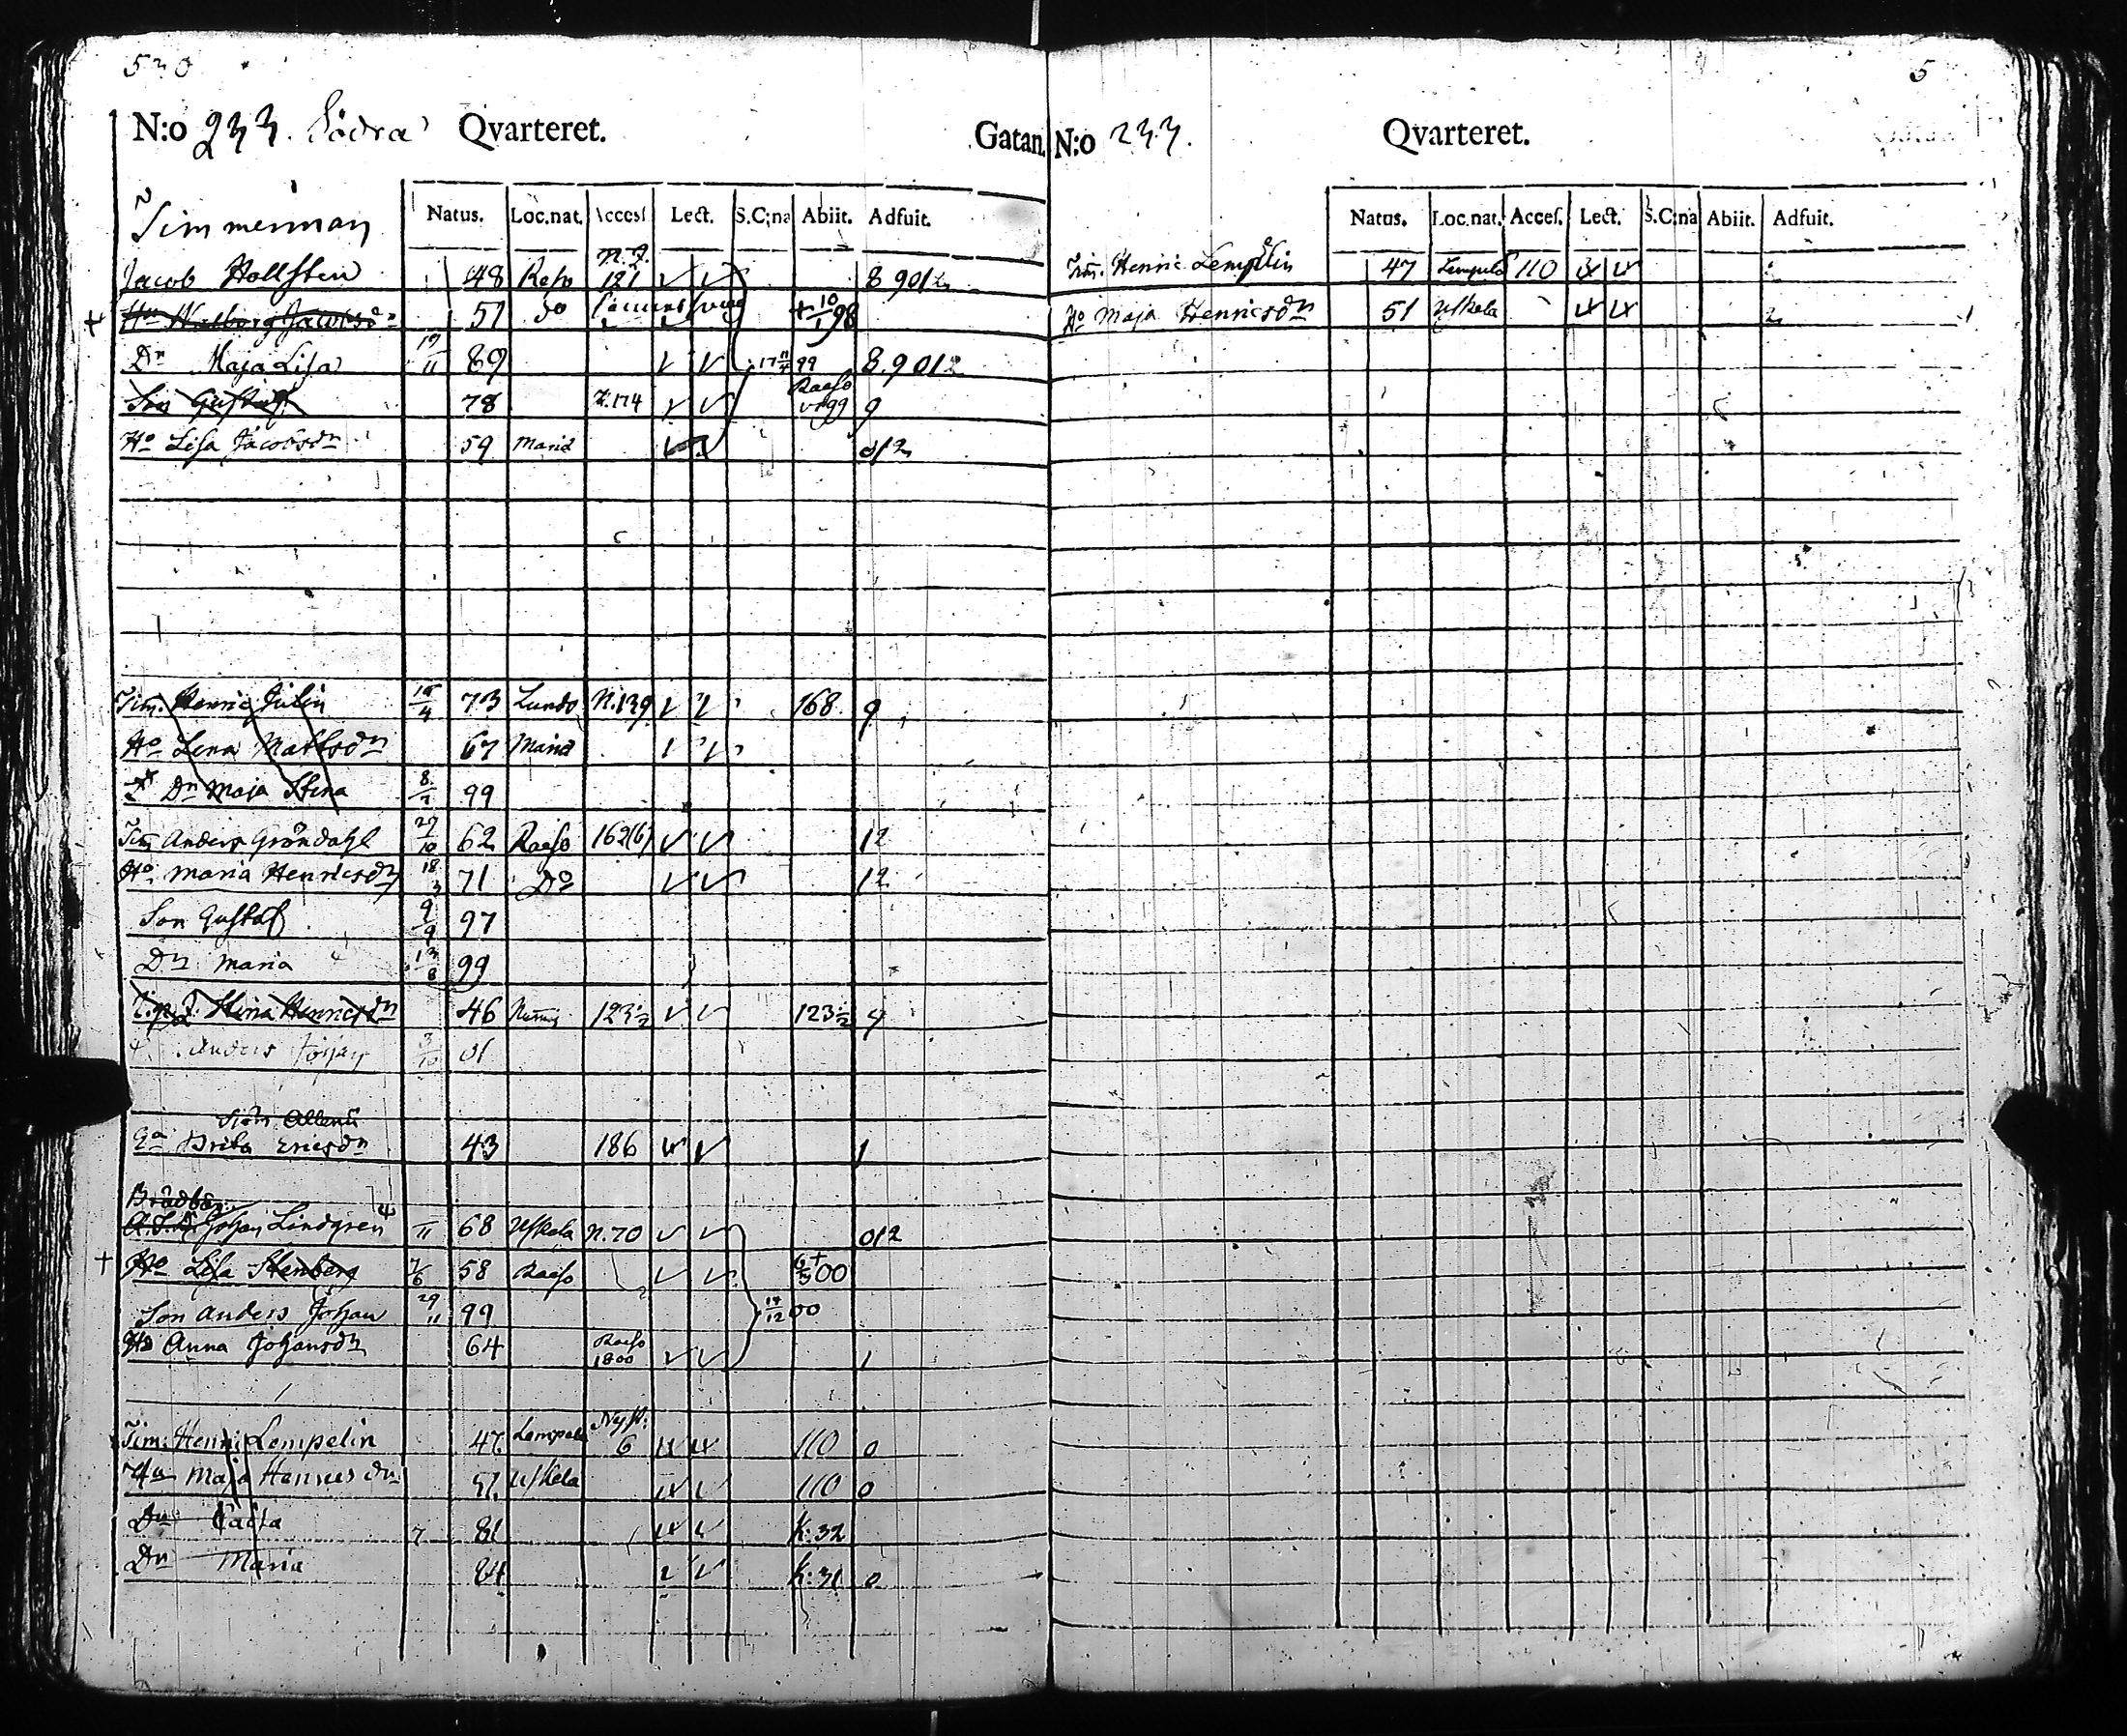 N:o 233. Södra Qvarteret. Gatan.
Timmerman
Natus. Loc.nat. Accesſ Lect. S.C:na Abiit. Adfuit.
Jacob Hollsten 48 Reso n.q. 121 8 9012
Hu Walborg Jacobsdr 51 do + 10/1 98
Dr Maja Lisa 19/11 89 99 8.9012
Son Gustaf 78 N.174 Raeso 99 9
Ho Lisa Jacobsdn 59 Mariæ 012
Tim. Henric Julin 73 Lundo N.139 168 9
Ho Lena Mattsdn 67 Mariæ
Dn Maja Stina 8/7 99
Tim Anders Gröndahl 27/10 62 Raeso 162(6) 12
Ho Maria Henricsdn 18/3 71 Do 12
Son Gustaf 9/9 97
Dn Maria 13/8 99
Stina Henricsdn 46 123½ 123½ 9
Anders Johan 3/10 01
Brita Ericsdn 43 186 1
Johan Lindgren 4/11 68 Uskela N.70 012
Ho Lisa Stenberg 7/6 58 Raeso + 00
Son Anders Johan 29/11 99 17/12 00
Ho Anna Johansdn 64 Raeso 1800 1
Tim: Henric Lempelin 47 Lempela Nyst: 6 110 0
Hu Maja Henricsdn 51 Uskela 110 0
Dn Caisa 7 81 K:32
Dn Maria 84 K:31 0
5
N:o 233. Qvarteret.
Natus. Loc.nat. Accesſ. Lect. S.C:na Abiit. Adfuit.
Tim. Henric Lempelin 47 Lempela 110
Ho Maja Henricsdn 51 Uskela 2